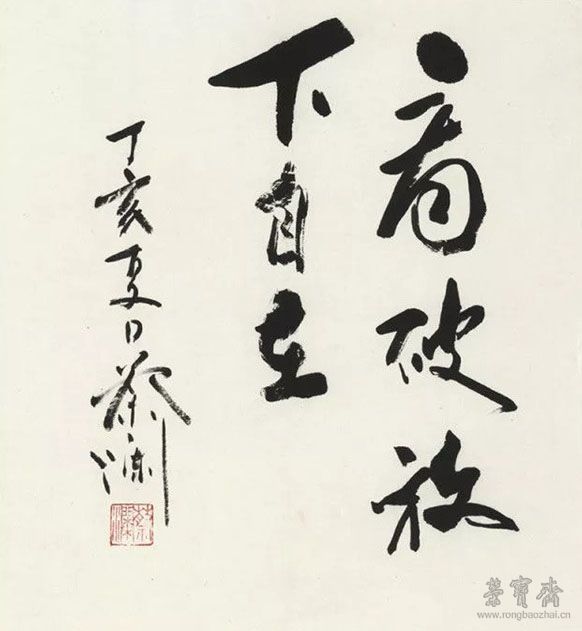 看破放
下自在
丁亥夏日蔡澜
蔡瀾
荣寶齋
www.rongbaozhai.cn